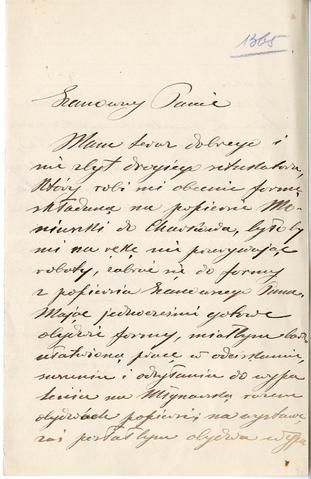 1365
Szanowny Panie
Mam teraz dobrego i
nie zbyt drogiego sztukatora,
który robi mi obecnie formę
składaną na popiersie Mo-
niuszki do Charkowa, byłoby
mi na rękę nie przerywając
roboty, zabrać się do formy
z popiersia Szanownego Pana.
Mając jednocześnie gotowe
obydwie formy, miałbym
ułatwioną pracę w odciskaniu,
suszeniu i odsyłaniu do wypa-
lenia na Młynarską razem
obydwóch popiersi, na wystawę
zaś posłałbym obydwa